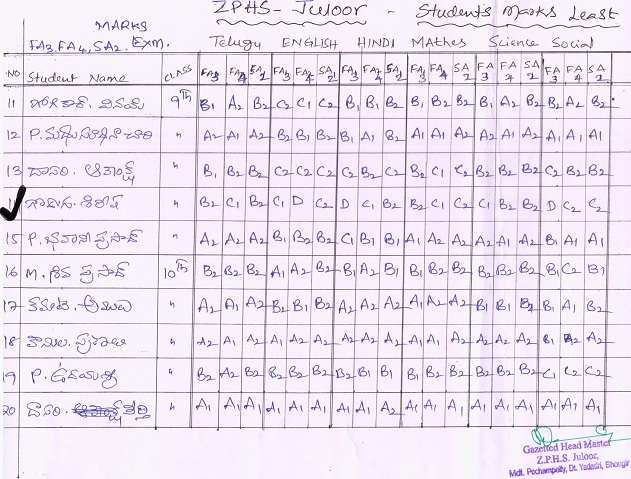 ZPHS- Juloor - Students Marks Least
MARKS
FA3, FA4, SA2. EXM. Telugu ENGLISH HINDI MAthes Science Social
NO Student Name CLASS FA3 FA4 SA2 FA3 FA4 SA2 FA3 FA4 SA2 FA3 FA4 SA2 FA3 FA4 SA2 FA3 FA4 SA2
11 వినయ్ 9th B1 A2 B2 C2 C1 C2 B1 B1 B2 B1 B2 B2 B1 A2 B2 B2 A2 B2
12 P. " A2 A1 A2 B2 B1 B2 B1 A1 B2 A1 A1 A2 A2 A1 A2 A1 A1 A1
13 దాసరి. " B1 B2 B2 C2 C2 C2 C2 B2 C2 B2 C1 C2 B2 B2 B2 C2 B2 B2
శిరీష " B2 C1 B2 C1 D C2 D C1 B2 B2 C1 C2 C1 B2 B2 D C2 C2
15 P. భవాని ప్రసాద్ " A2 A2 A2 B1 B2 B2 C1 B1 B1 A1 A2 A2 A2 A2 A2 B1 A1 A1
16 M. శివ ప్రసాద్ 10th B2 B2 B2 A1 A2 B2 B1 A2 B1 B1 B2 B2 B2 B2 B2 B1 C2 B1
17 అములు " A2 A1 A2 B2 B1 B2 A2 A2 A2 A1 A2 A2 B1 B1 B2 B1 A1 B2
18 " A2 A1 A2 A2 A1 A2 A2 A1 A2 A1 A1 A2 A2 A2 A2 B1 A2 A2
19 P. ఉదయశ్రీ " B2 A2 B2 B2 B2 B2 B2 B1 B1 B1 B2 B2 B2 B2 B2 C1 C2 C2
20 దాసరి. కీర్తి " A1 A1 A1 A1 A1 A1 A1 A1 A2 A1 A1 A1 A1 A1 A1 A1 A1 A1
Gazetted Head Master
Z.P.H.S. Juloor,
Mdl. Pochampally, Dt. Yadadri, Bhongir